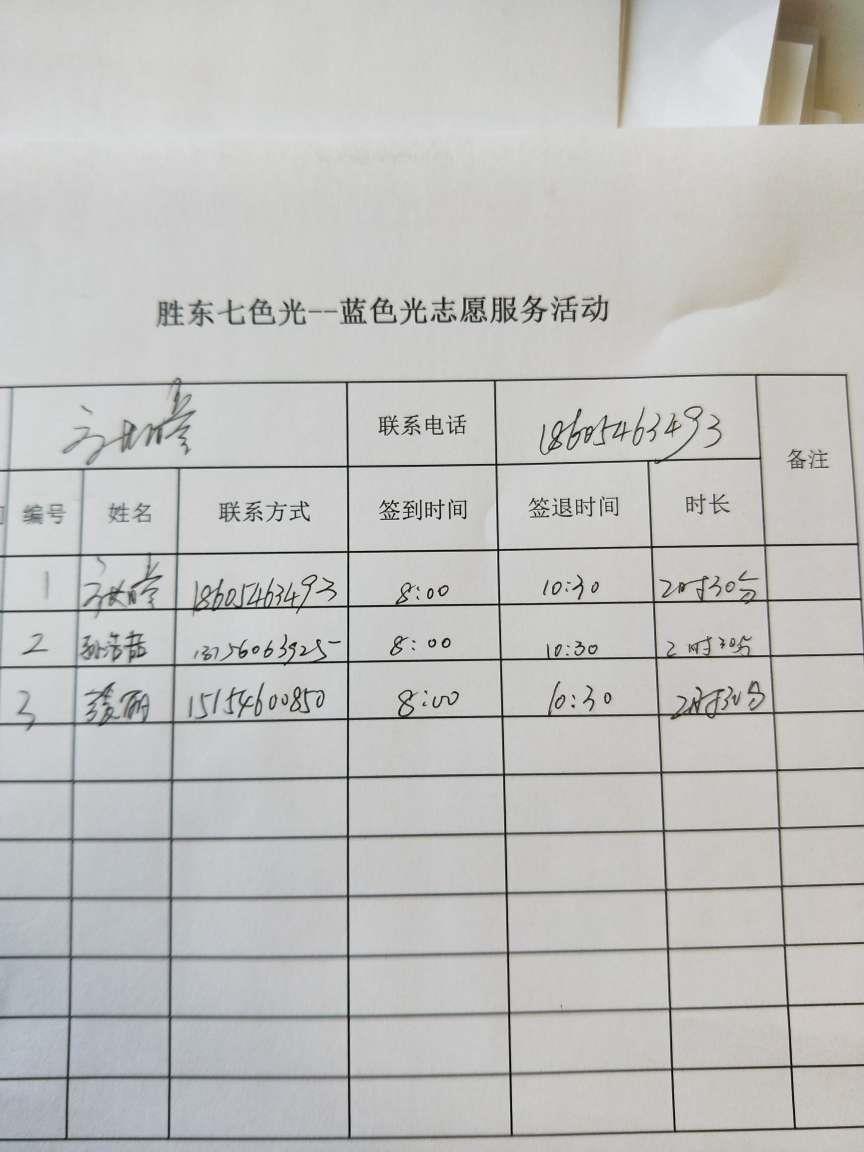 胜东七色光--蓝色光志愿服务活动
联系电话 18605463493 备注
编号 姓名 联系方式 签到时间 签退时间 时长
1 18605463493 8:00 10:30 2时30分
2 8:00 10:30 2时30分
3 15154600850 8:00 10:30 2时30分